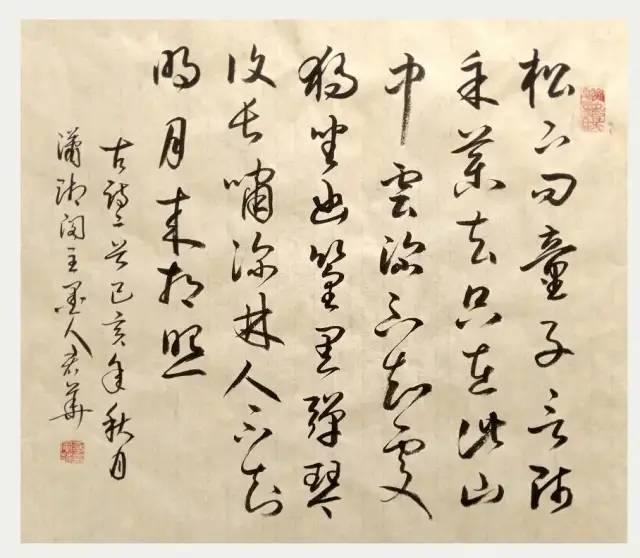 松下问童子言师
采药去只在此山
中雲深不知处
独坐幽篁里弹琴
复长嘯深林人不知
明月来相照
古诗二首己亥年秋月
瀟湘主墨人華